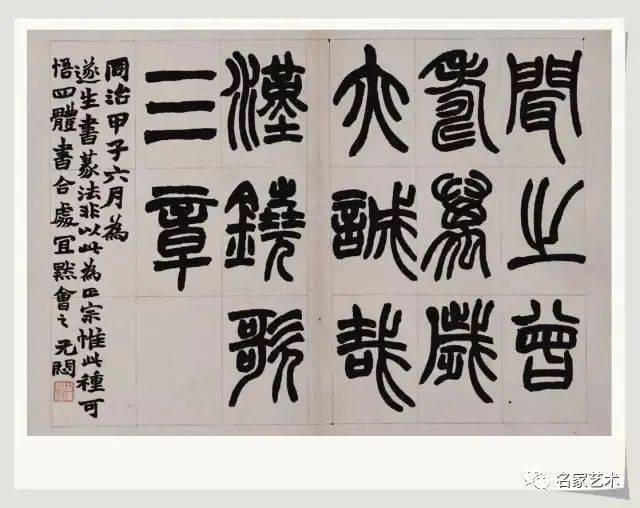 聞之曾
壽萬歲
亦誠哉
漢鐃歌
三章
同治甲子六月為
遂生書篆法非以此為正宗惟此種可
悟四體書合處宜默會之 无悶
名家艺术